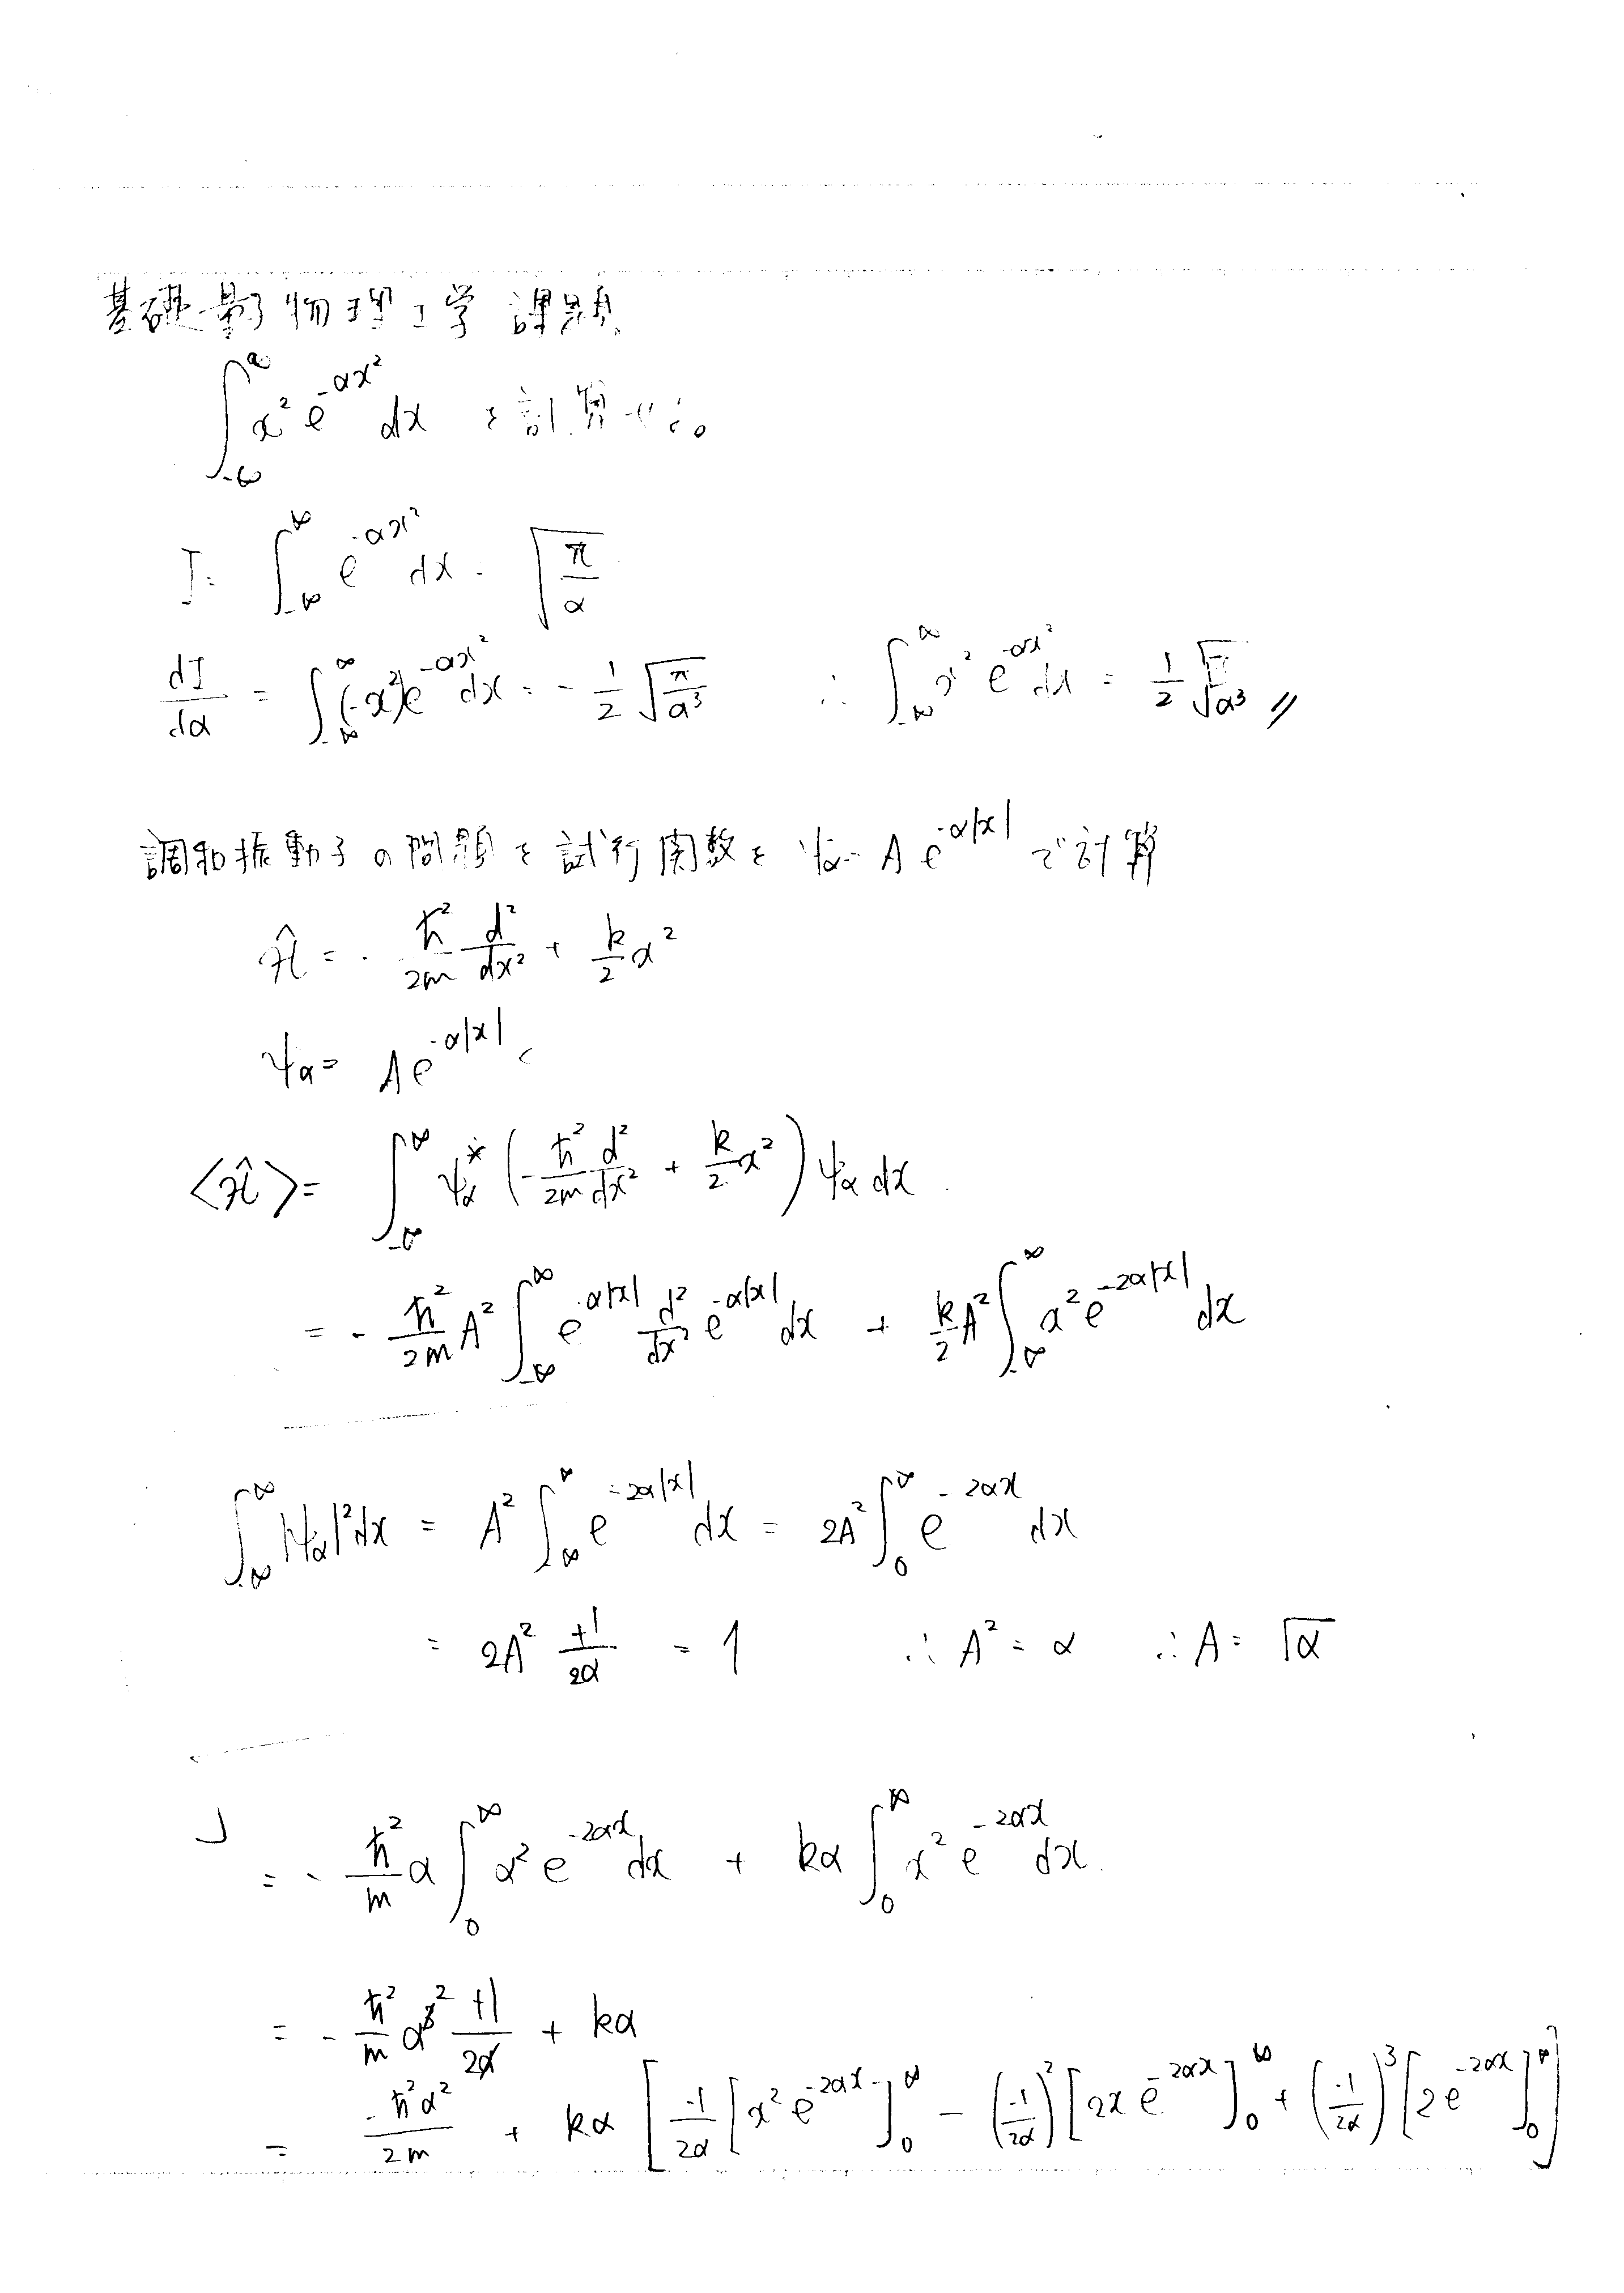 基礎量子物理工学 課題
∫_{-∞}^{∞} x² e^{-αx²} dx を計算せよ。
I = ∫_{-∞}^{∞} e^{-αx²} dx = √(π/α)
dI/dα = ∫_{-∞}^{∞} (-x²) e^{-αx²} dx = -1/2 √(π/α³) ∴ ∫_{-∞}^{∞} x² e^{-αx²} dx = 1/2 √(π/α³) //
調和振動子の問題を試行関数を ψ_α = A e^{-α|x|} で計算
Ĥ = -ħ²/2m d²/dx² + k/2 x²
ψ_α = A e^{-α|x|}
⟨Ĥ⟩ = ∫_{-∞}^{∞} ψ_α* (-ħ²/2m d²/dx² + k/2 x²) ψ_α dx
= -ħ²/2m A² ∫_{-∞}^{∞} e^{-α|x|} d²/dx² e^{-α|x|} dx + k/2 A² ∫_{-∞}^{∞} x² e^{-2α|x|} dx
∫_{-∞}^{∞} |ψ_α|² dx = A² ∫_{-∞}^{∞} e^{-2α|x|} dx = 2A² ∫_0^∞ e^{-2αx} dx
= 2A² +1/2α = 1 ∴ A² = α ∴ A = √α
= -ħ²/m α ∫_0^∞ α² e^{-2αx} dx + kα ∫_0^∞ x² e^{-2αx} dx
= -ħ²/m α² +1/2α + kα
= -ħ²α²/2m + kα [ -1/2α [x² e^{-2αx}]_0^∞ - (-1/2α)² [2x e^{-2αx}]_0^∞ + (-1/2α)³ [2e^{-2αx}]_0^∞ ]